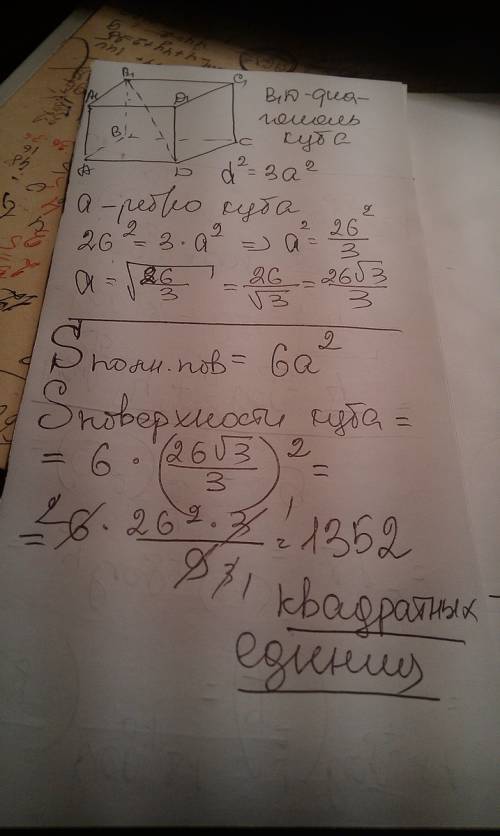 B₁ C₁
A₁ D₁
B C
A D
B₁D - диа-
гональ
куба
d² = 3a²
a - ребро куба
26² = 3 · a² => a² = 26²/3
a = √26/3 = 26/√3 = 26√3/3
Sполн.пов = 6a²
Sповерхности куба =
= 6 · (26√3/3)² =
= 6 · 26² · 3 / 9 = 1352
квадратных
единиц